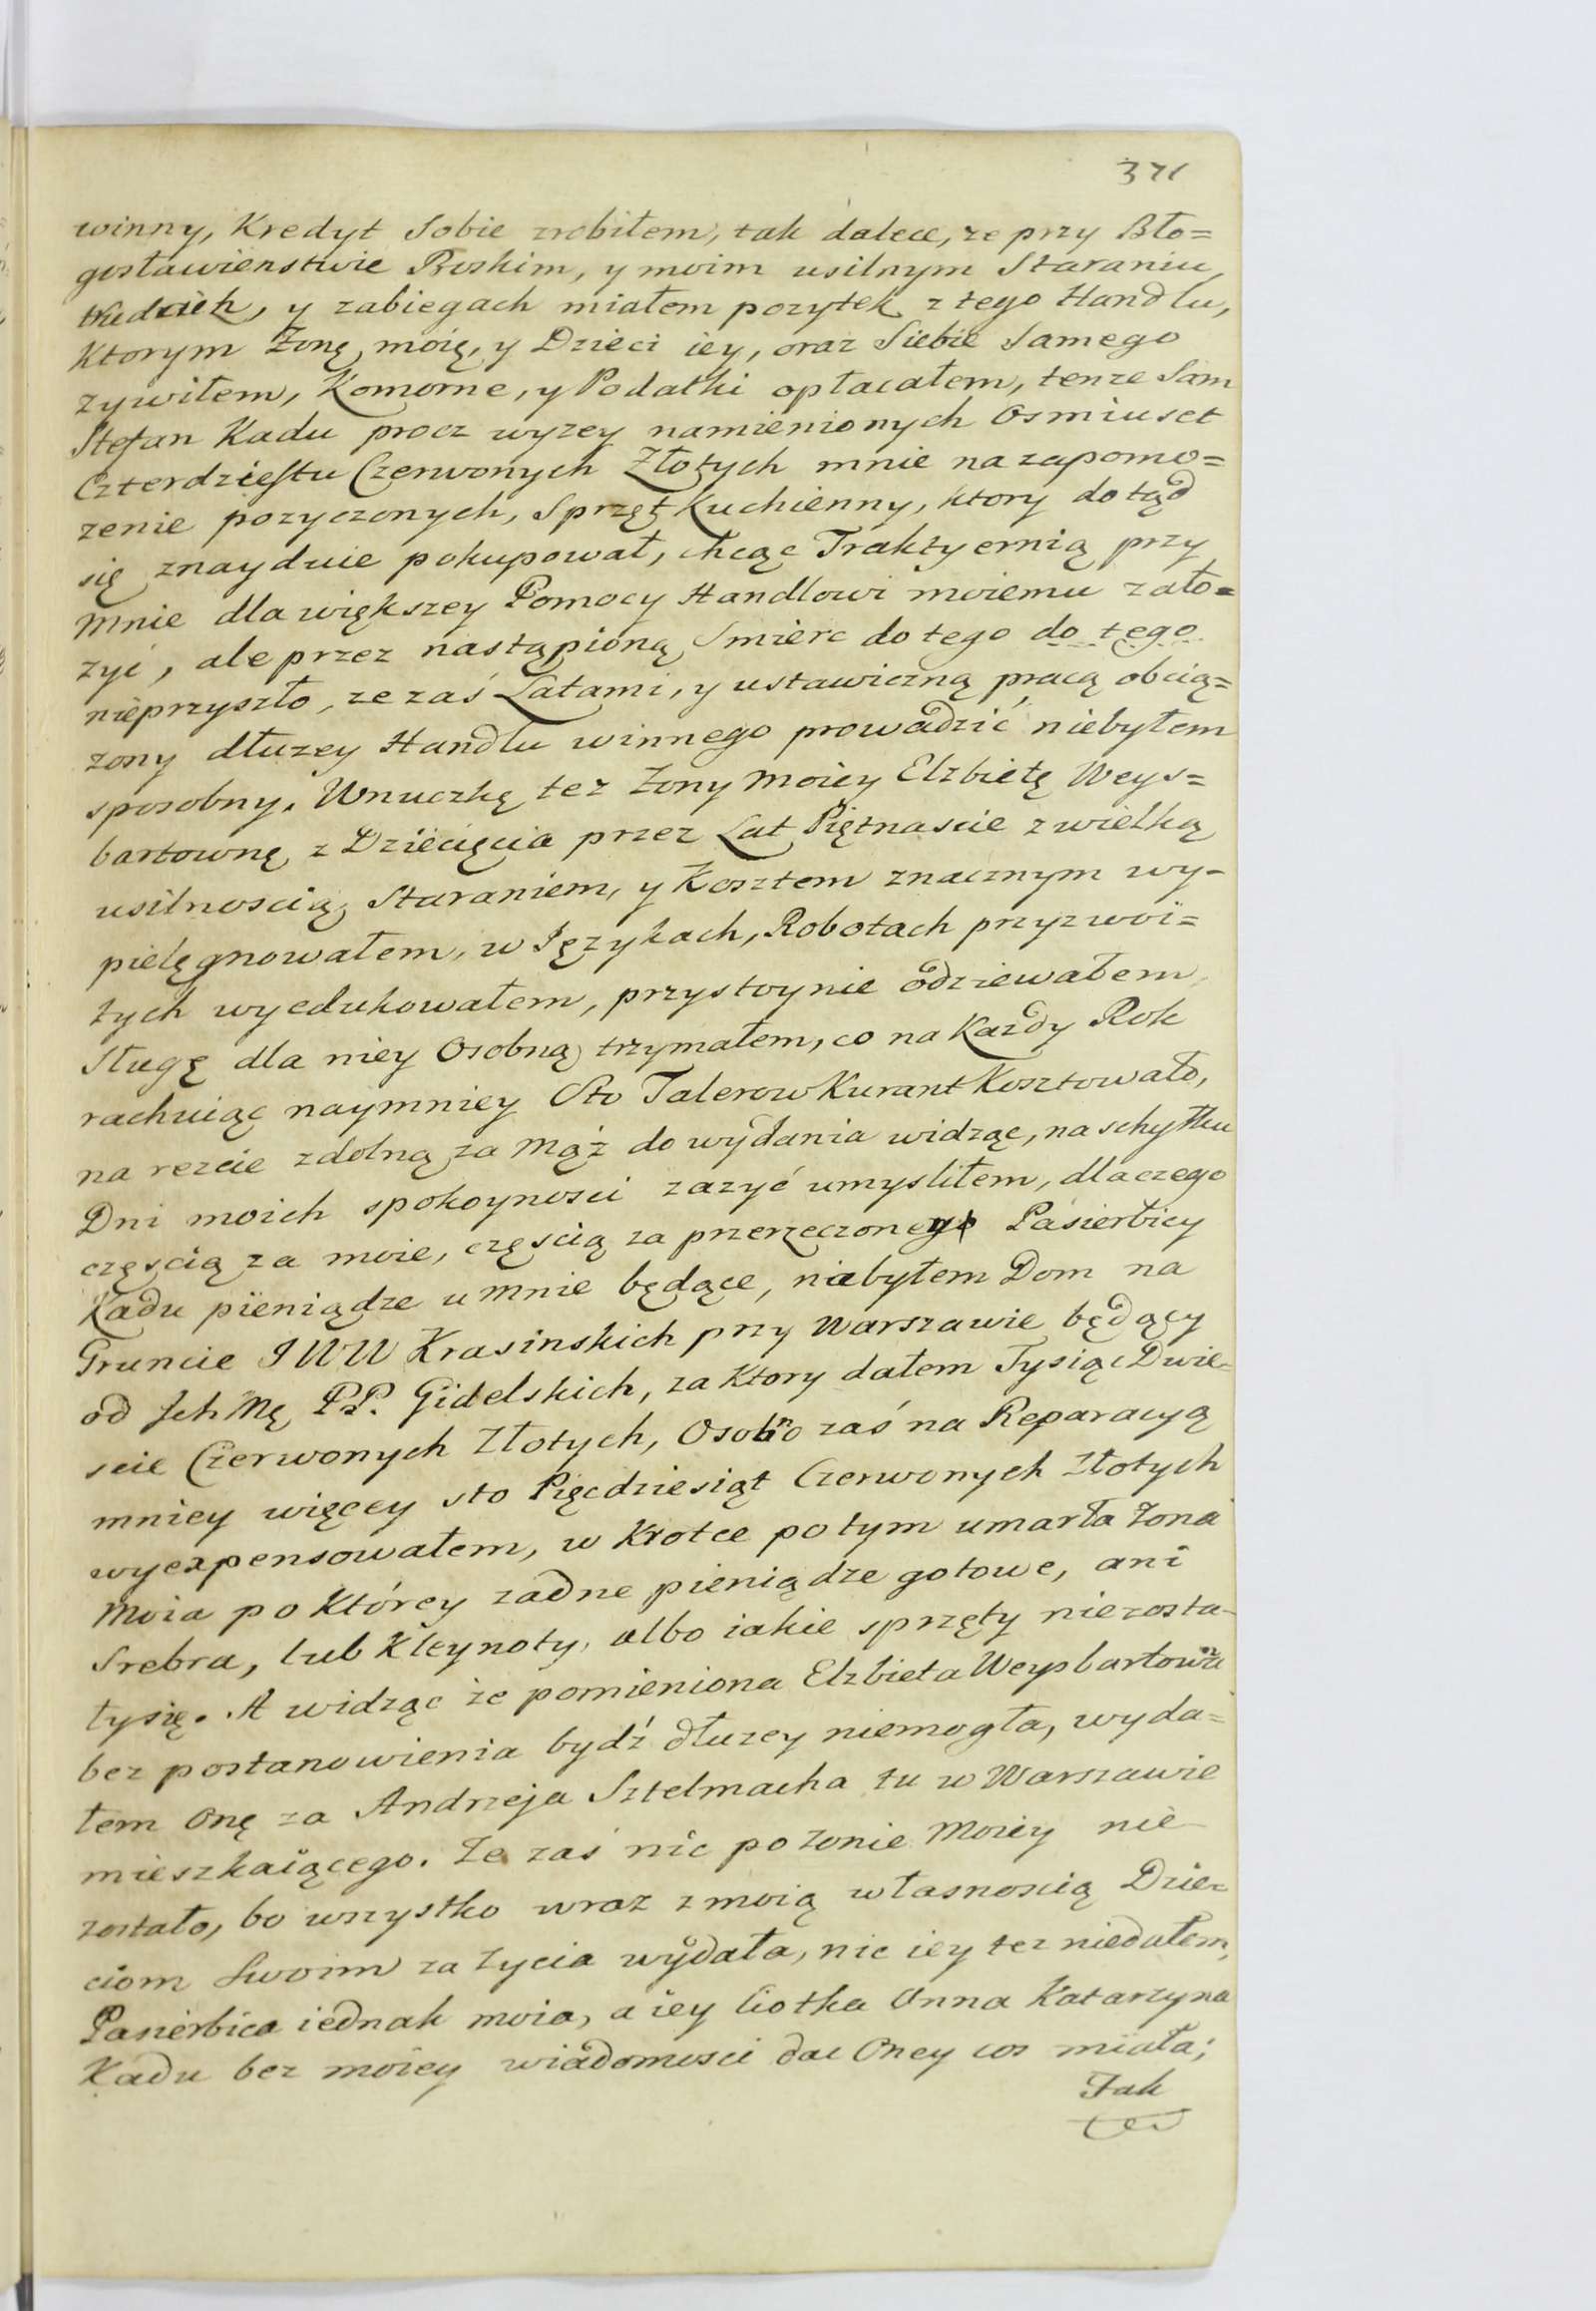 371
winny, Kredyt Sobie zrobiłem, tak dalece, ze przy Bło=
gosławienstwie Boskim, y moim usilnym Staraniu,
trudzieh, y zabiegach miałem pozytek z tego Handlu,
Ktorym Zonę moię, y Dzieci iey, oraz Siebie Samego
zywiłem, Komorne, y Podatki opłacałem, tenze Sam
Stefan Kadu procz wyzey namienionych Osmiuset
Czterdziestu Czerwonych Złotych mnie na zapomo=
zenie pozyczonych, Sprzęt Kuchienny, ktory dotąd
się znayduie pokupował, chcąc Traktyernią przy
mnie dla większey Pomocy Handlowi moiemu zało=
zyć, ale przez nastąpioną Smierc do tego do tego
nieprzyszło, ze zaś Latami, y ustawiczną pracą obcią=
zony dłuzey Handlu winnego prowadzić niebyłem
sposobny. Wnuczkę tez Zony moiey Elzbietę Weys=
bartownę z Dziecięcia przez Lat Piętnascie z wielką
usilnoscią, Staraniem, y Kosztem znacznym wy-
pielęgnowałem, w Językach, Robotach przyzwoi=
tych wyedukowałem, przystoynie odziewałem,
Sługę dla niey Osobną trzymałem, co na Kazdy Rok
rachuiąc naymniey Sto Talerow Kurant Kosztowało,
na rezcie zdolną za Mąż do wydania widząc, na schyłku
Dni moich spokoynosci zazyć umysliłem, dlaczego
częscią za moie, częscią za przerzeczoney Pasierbicy
Kadu pieniądze u mnie będące, nabyłem Dom na
Gruncie JWW Krasinskich przy Warszawie będący
od Ich Mę PP. Gidelskich, za Ktory dałem Tysiąc Dwie-
scie Czerwonych Złotych, Osobno zaś na Reparacyą
mniey więcey sto Pięcdziesiąt Czerwonych Złotych
wyexpensowałem, w Krotce po tym umarła Zona
Moia po Którey zadne pieniądze gotowe, ani
Srebra, lub Kleynoty, albo iakie sprzęty niezosta-
łysię. A widząc ze pomieniona Elzbieta Weysbartowna
bez postanowienia bydź dłuzey niemogła, wyda=
łem Onę za Andrzeja Sztelmacha tu w Warszawie
mieszkaiącego. Ze zaś nic po Zonie Moiey nie
zostało, bo wszystko wraz z moią własnoscią Dzie-
ciom Swoim za Zycia wydała, nic iey tez niedałem,
Pasierbica iednak moia, a iey Ciotka Anna Katarzyna
Kadu bez moiey wiadomosci dac Oney cos miała;
Tak